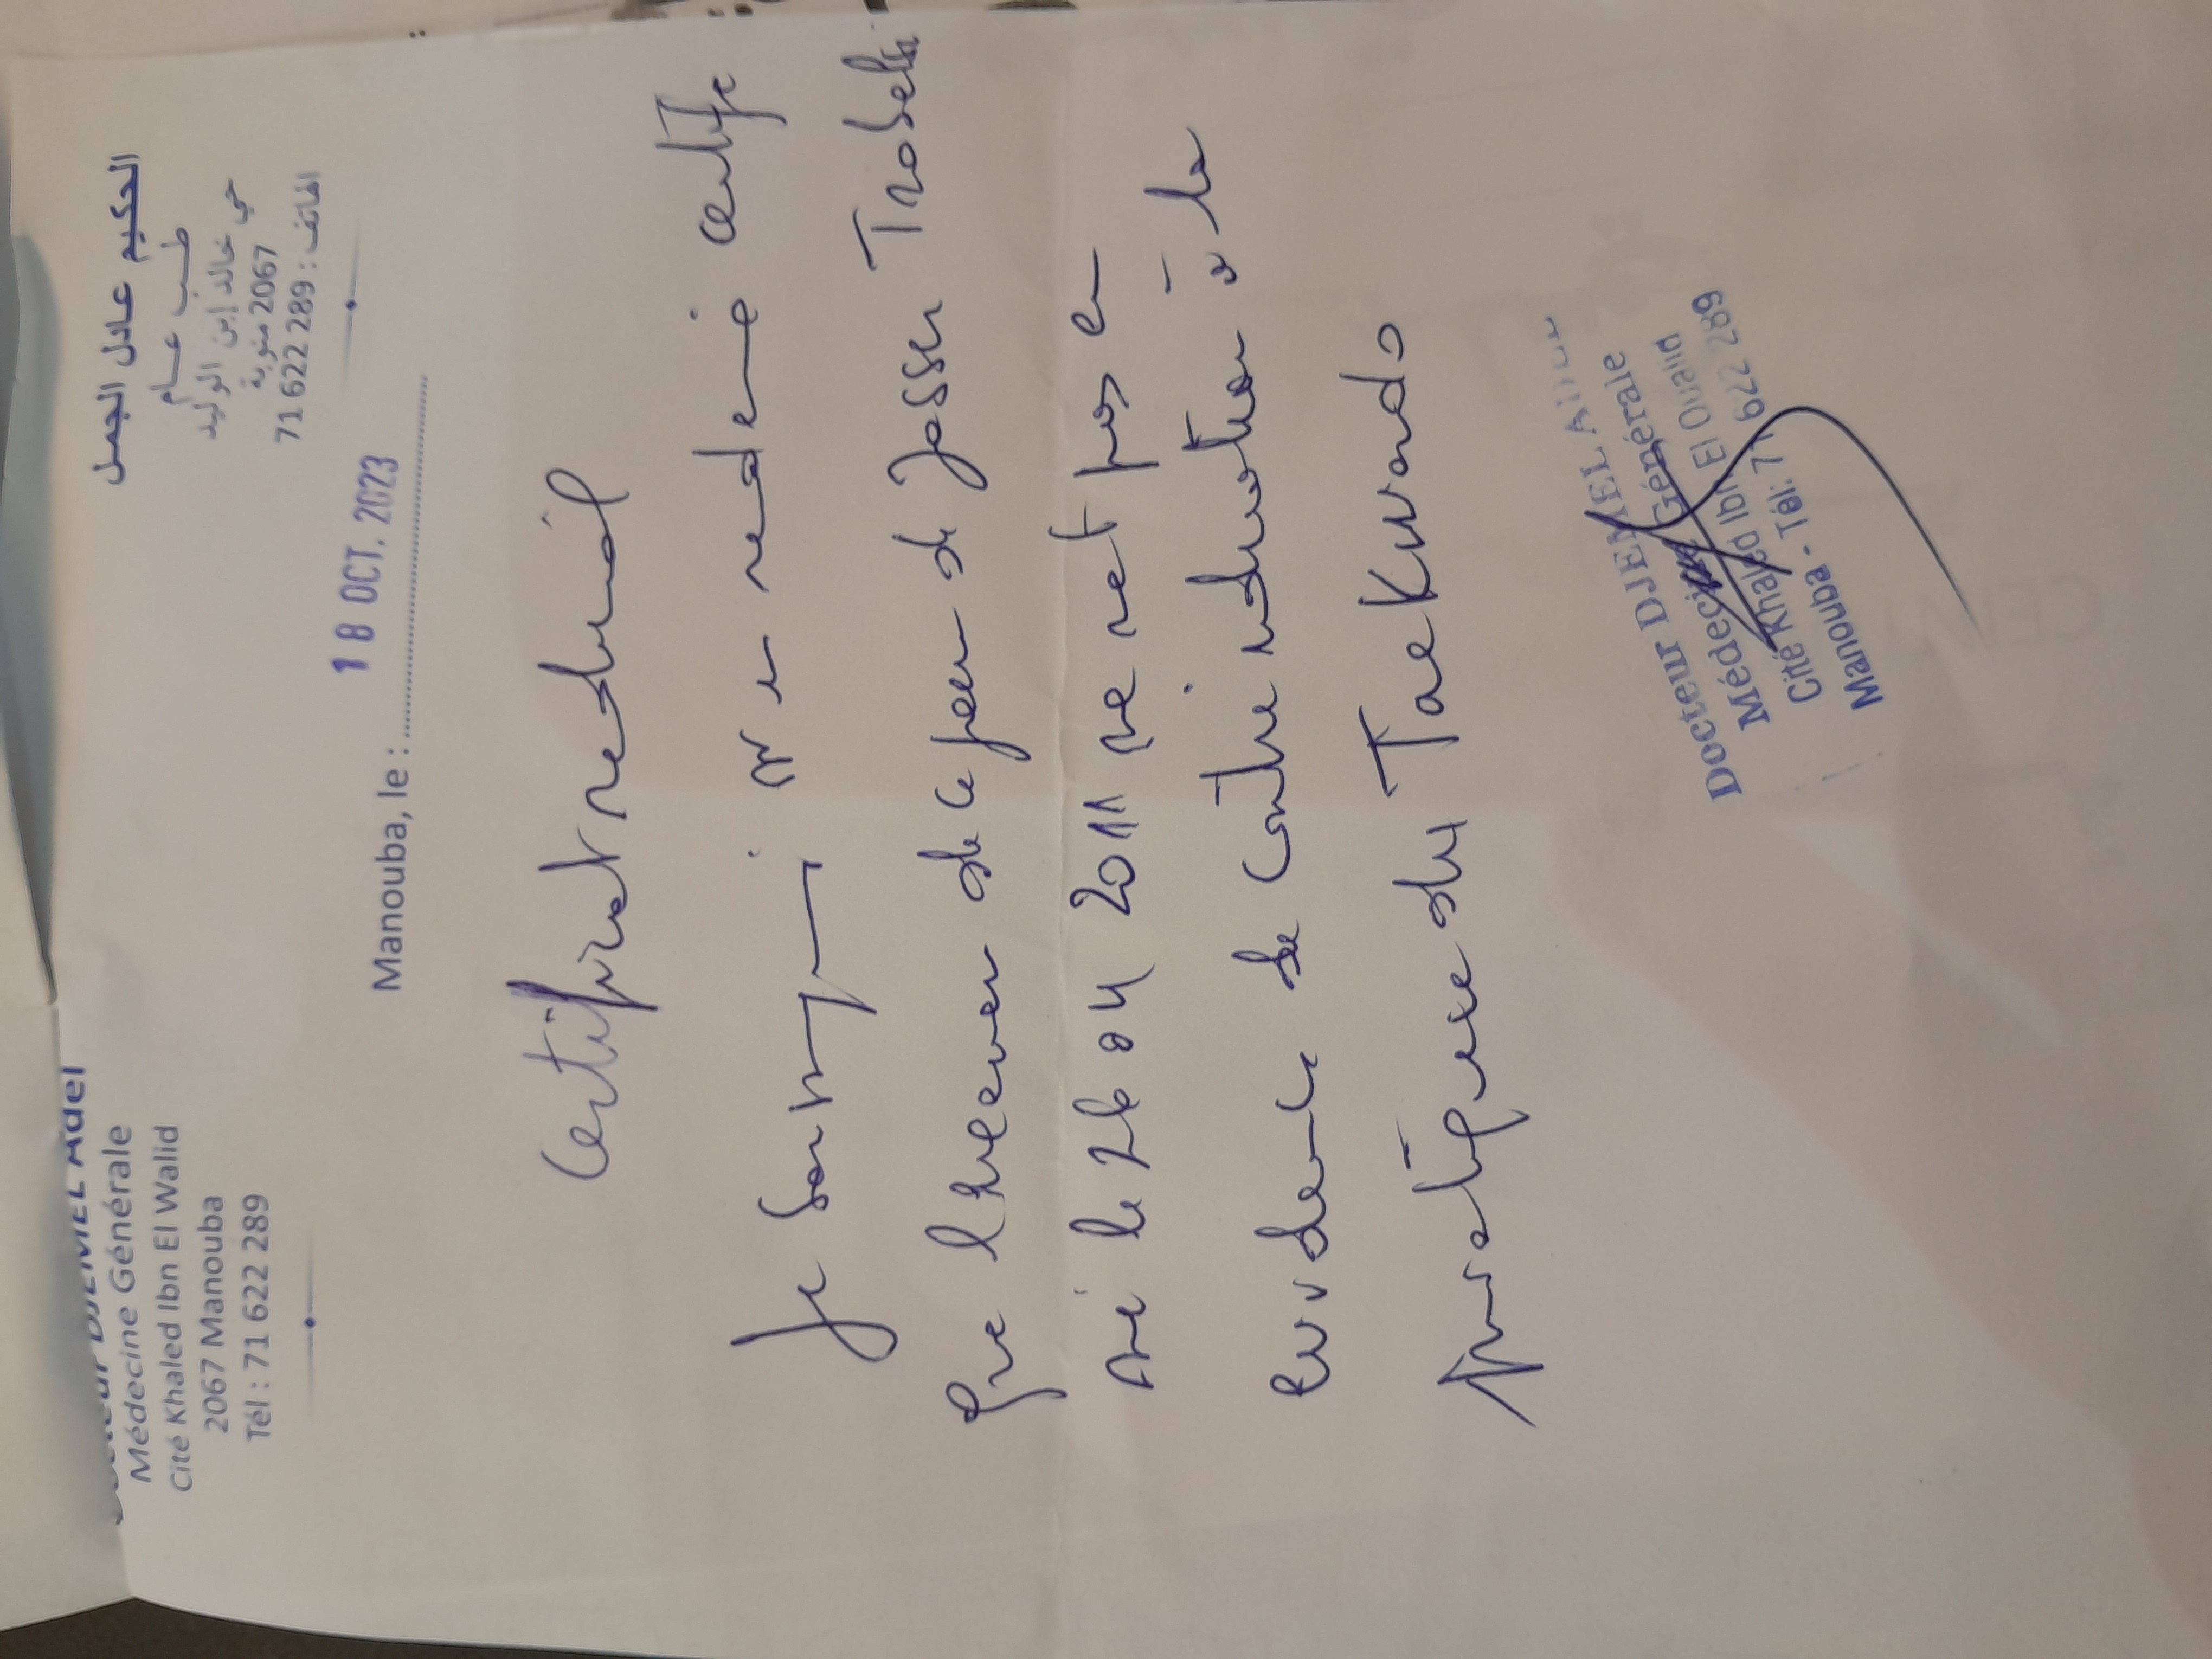 Docteur DJEMEL Adel
Médecine Générale
Cité Khaled Ibn El Walid
2067 Manouba
Tél : 71 622 289
الحكيم عادل الجمل
طب عام
حي خالد إبن الوليد
2067 منوبة
الهاتف : 289 622 71
Manouba, le :
18 OCT. 2023
Certificat médical
Je soussigné Dr en médecine certifie
que l'examen de ce jour de Jasser
né le 26 04 2011 ne met pas en
évidence de contre indication à la
pratique du TaeKwondo
Docteur DJEMEL
Médecine Générale
Cité Khaled Ibn El Oualid
Manouba - Tél: 71 622 289